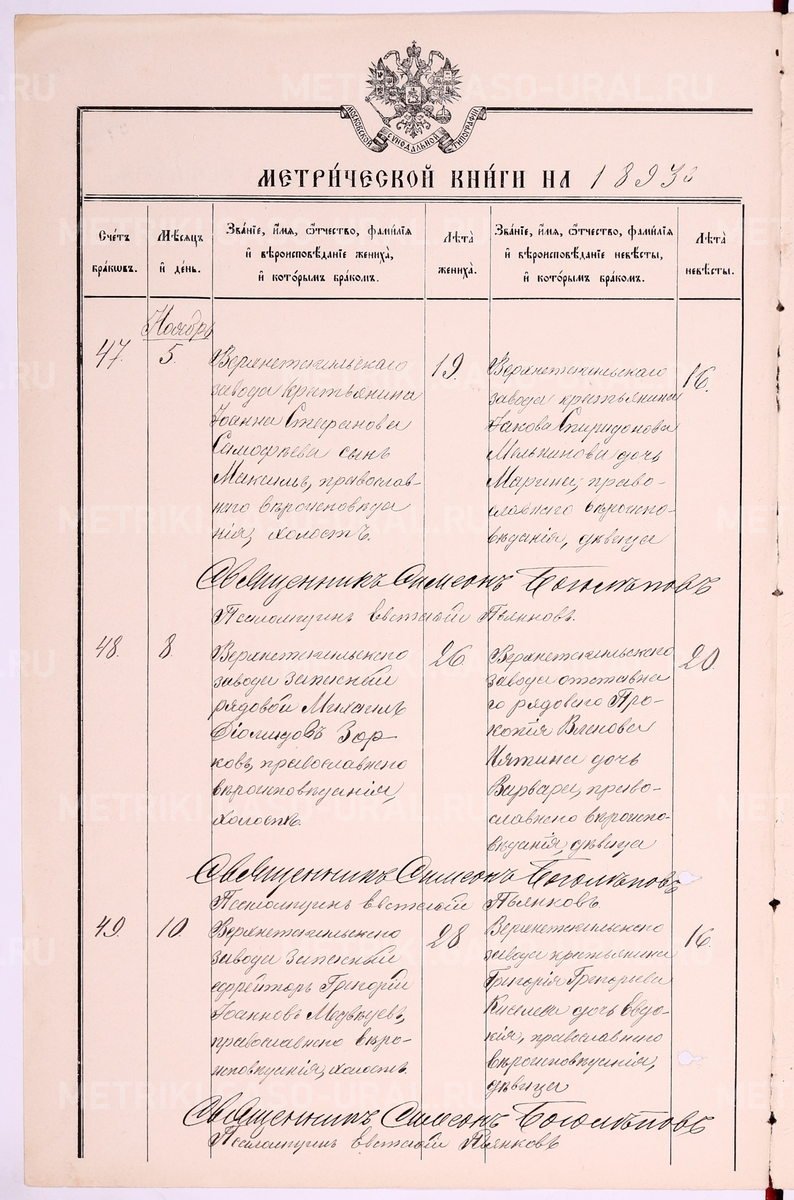 МОСКОВСКОЙ СѴНОДАЛЬНОЙ ТИПОГРАФІИ
МЕТРИ́ЧЕСКОЙ КНИ́ГИ НА 1893
Сче́тъ бра́ковъ.
Мѣ́сяцъ и҆ де́нь.
Зва́нїе, и҆́мя, ѻ҆́тчество, фами́лїя и҆ вѣроисповѣ́данїе жениха̀, и҆ кото́рымъ бра́комъ.
Лѣ́та жениха̀.
Зва́нїе, и҆́мя, ѻ҆́тчество, фами́лїя и҆ вѣроисповѣ́данїе невѣ́сты, и҆ кото́рымъ бра́комъ.
Лѣ́та невѣ́сты.
Ноябрь
47.
5.
Верхнетагильскаго
завода крестьянина
Іоанна Стефанова
сынъ
Максимъ, православ-
наго вѣроисповѣда
нія, холостъ.
19.
Верхнетагильскаго
завода крестьянина
Іакова Спиридонова
Мельникова дочь
Марина, право-
славнаго вѣроиспо-
вѣданія, дѣвица
16.
Священникъ Симеонъ Боголѣповъ
Псаломщикъ Евстафій Пьянковъ.
48.
8.
Верхнетагильскаго
завода запасный
рядовой Михаилъ
православнаго
вѣроисповѣданія,
холостъ.
26
Верхнетагильскаго
завода отставна
го рядоваго Про-
копія
дочь
Варвара, право-
славнаго вѣроиспо-
вѣданія, дѣвица
20
Священникъ Симеонъ Боголѣповъ
Псаломщикъ Евстафій Пьянковъ
49.
10
Верхнетагильскаго
завода запасный
ефрейторъ Григорій
Іоанновъ Медвѣдевъ,
православнаго вѣро-
исповѣданія, холостъ.
28
Верхнетагильскаго
завода крестьянина
Григорія Григорьева
Киселева дочь Евдо-
кія, православнаго
вѣроисповѣданія,
дѣвица
16.
Священникъ Симеонъ Боголѣповъ
Псаломщикъ Евстафій Пьянковъ